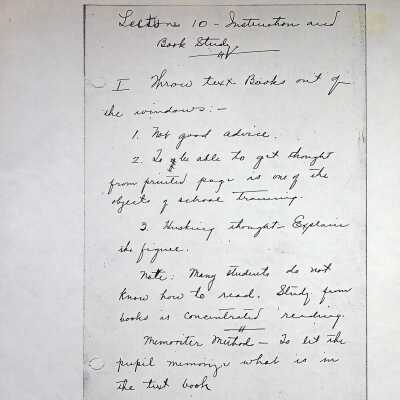 Lecture 10 - Instruction and
Book Study
I Throw text Books out of
the windows:-
1. Not good advice.
2. To be able to get thought
from printed page is one of the
objects of school training.
3. Husking thought - Explain
the figure.
Note: Many students do not
know how to read. Study from
books is concentrated reading.
Memoriter Method - To let the
pupil memorize what is in
the text book